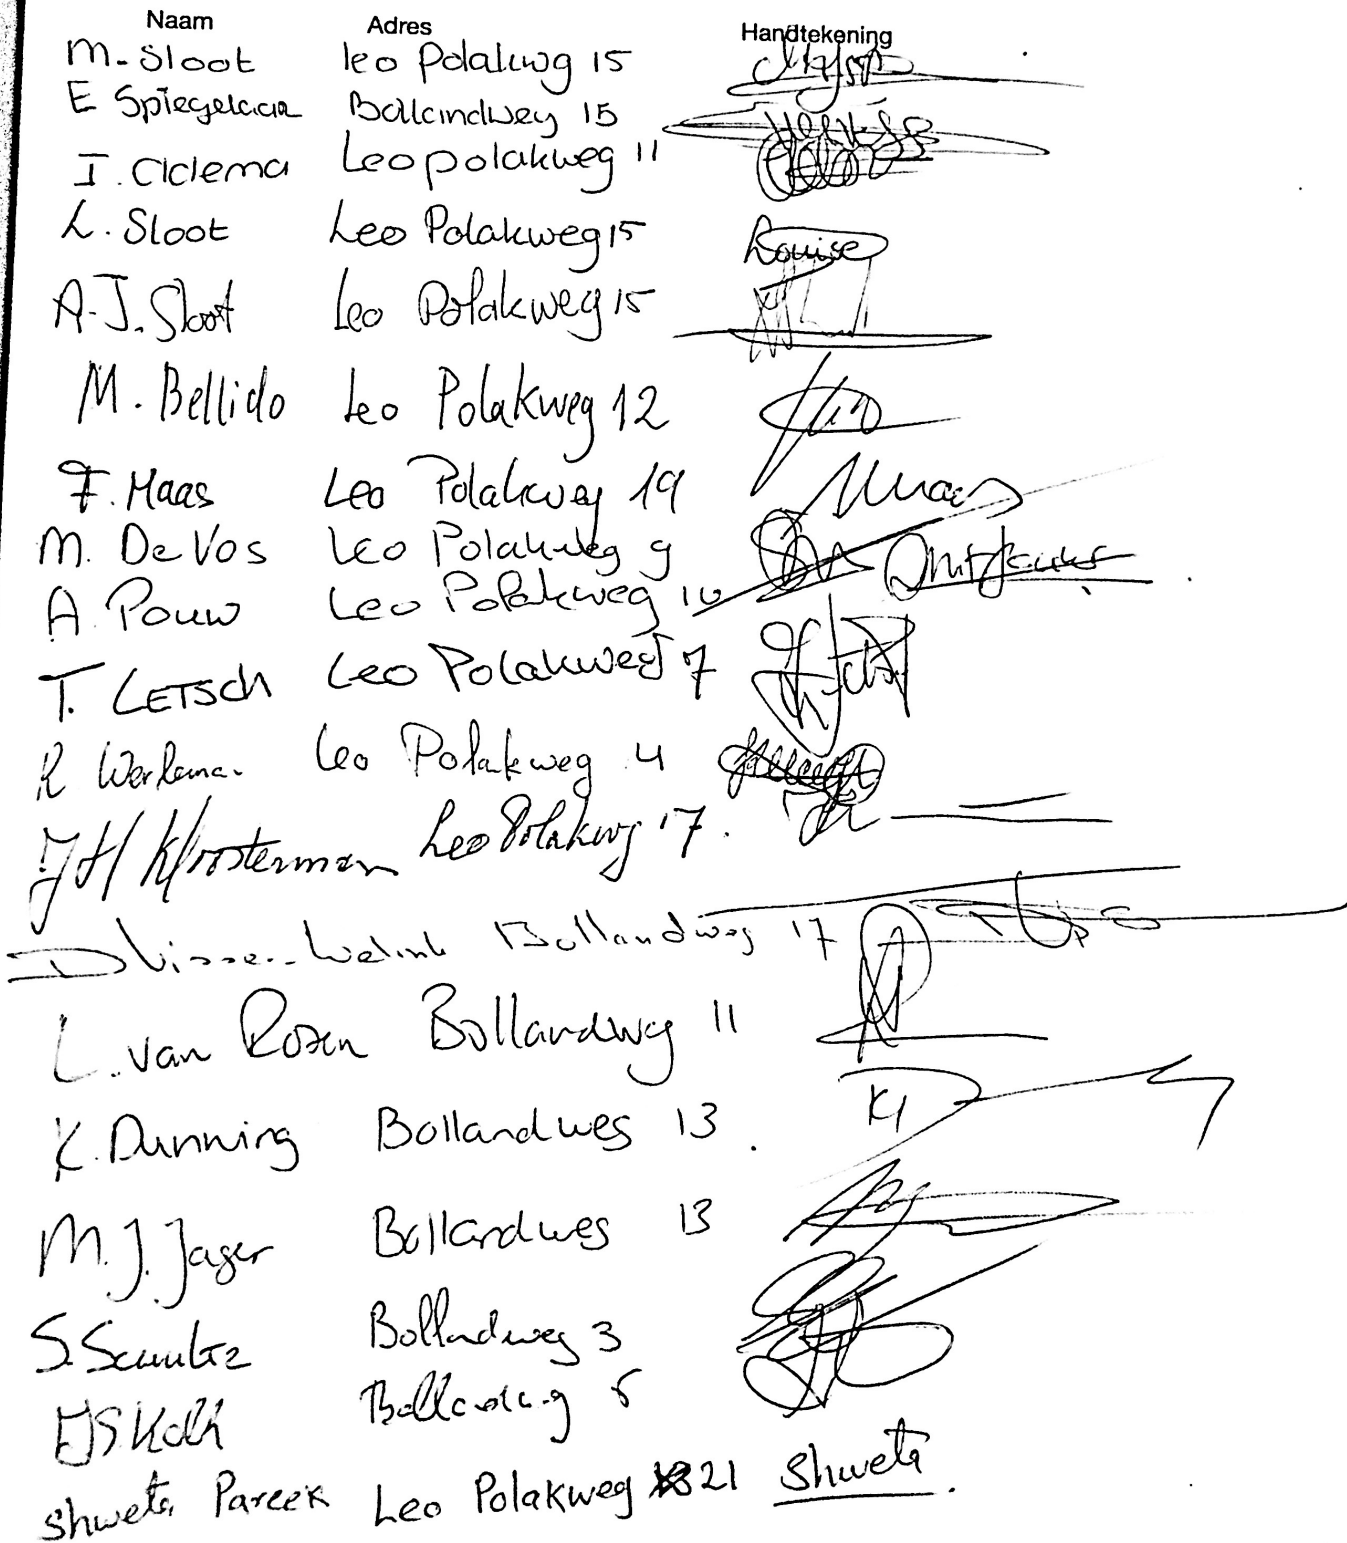 Naam Adres Handtekening
M. Sloot Leo Polakwg 15
E Spiegelaar Bollandweg 15
I. Cldema Leo polakweg 11
L. Sloot Leo Polakweg 15 Louise
A.J. Sloot Leo Polakweg 15
M. Bellido Leo Polakweg 12
F. Maas Leo Polakweg 19 Maas
M. De Vos Leo Polakweg 9
A. Pouw Leo Polakweg 10
T. LETSCH Leo Polakweg 7
R Werkma. Leo Polakweg 4
JH Kloosterman Leo Polakwg 17.
D Visser-Welink Bollandweg 17
L. van Rosen Bollandwg 11
K. Dunning Bollandweg 13
M.J. Jager Bollandweg 13
S. Schultz Bollandweg 3
Bollandweg 5
Shweta Pareek Leo Polakweg 21 Shweta.